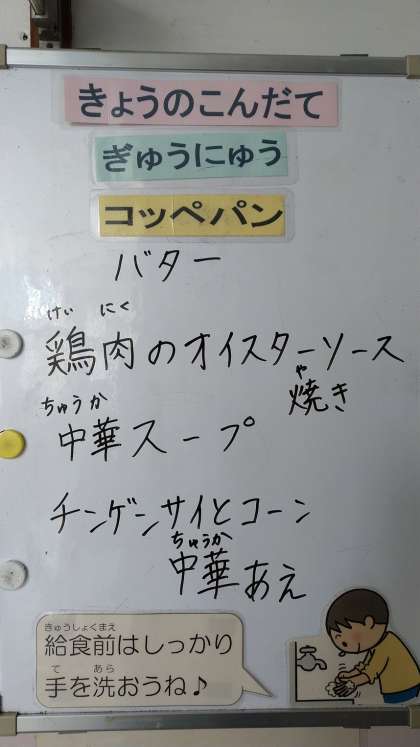 きょうのこんだて
ぎゅうにゅう
コッペパン
バター
けい にく
鶏肉のオイスターソース
や
焼き
ちゅうか
中華スープ
チンゲンサイとコーン
ちゅうか
中華あえ
きゅうしょくまえ
給食前はしっかり
て あら
手を洗おうね♪